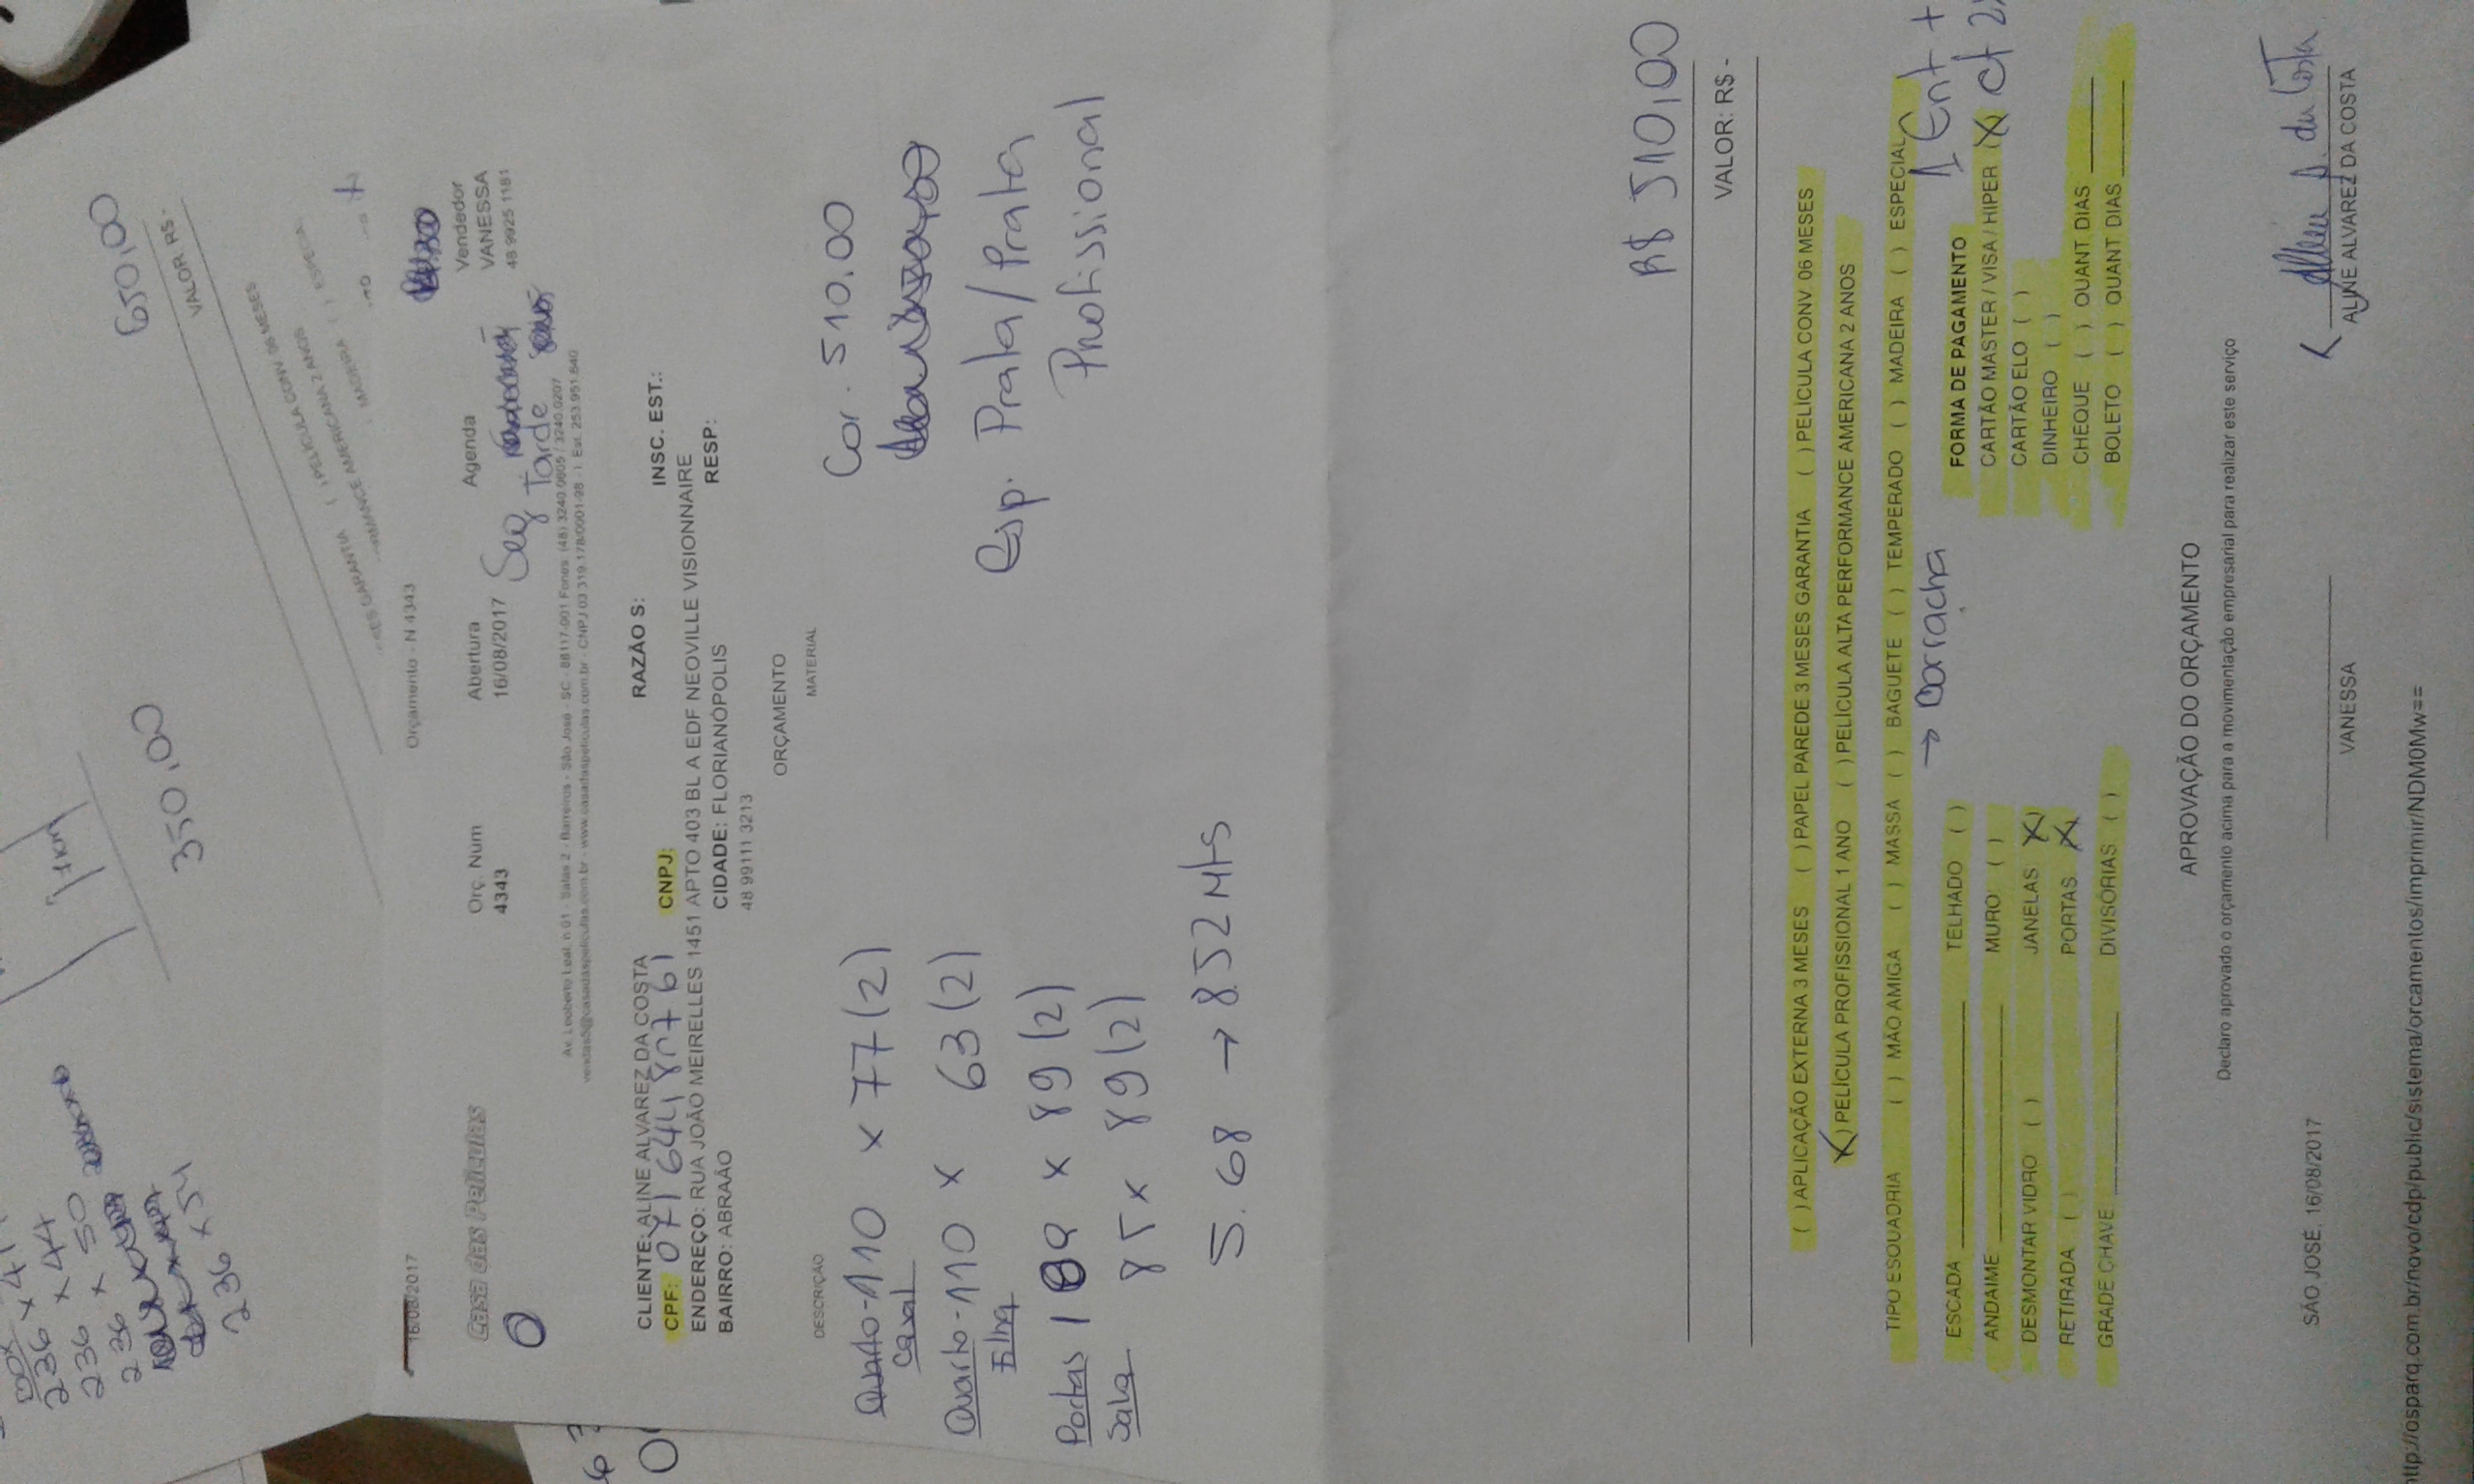 650,00
VALOR R$ -
350,00
236 x 44
236 x 50
236
236 x 54
16/08/2017
Orçamento - N 4343
Casa das Películas
Orç. Num
4343
Abertura
16/08/2017
Agenda
Seg
Tarde
Vendedor
VANESSA
48 9925 1181
Av. Leoberto Leal, n 01 - Salas 2 - Barreiros - São José - SC - 88117-001 Fones: (48) 3240.0605 / 3240.0207
CLIENTE: ALINE ALVAREZ DA COSTA
RAZÃO S:
INSC. EST.:
CPF:
CNPJ:
ENDEREÇO: RUA JOÃO MEIRELLES 1451 APTO 403 BL A EDF NEOVILLE VISIONNAIRE
BAIRRO: ABRAÃO
CIDADE: FLORIANÓPOLIS
RESP:
48 99111 3213
ORÇAMENTO
DESCRIÇÃO
MATERIAL
Quarto - 110 x 77 (2)
Casal
Cor. 510.00
Quarto - 110 x 63 (2)
Filha
Esp. Prata/Prata
Profissional
Portas 189 x 89 (2)
Sala 85 x 89 (2)
5.68 → 8.52 Mts
R$ 510,00
VALOR: R$ -
( ) APLICAÇÃO EXTERNA 3 MESES ( ) PAPEL PAREDE 3 MESES GARANTIA ( ) PELÍCULA CONV 06 MESES
(X) PELÍCULA PROFISSIONAL 1 ANO ( ) PELÍCULA ALTA PERFORMANCE AMERICANA 2 ANOS
TIPO ESQUADRIA ( ) MÃO AMIGA ( ) MASSA ( ) BAGUETE ( ) TEMPERADO ( ) MADEIRA ( ) ESPECIAL
→ borracha
1 Ent +
ESCADA ____ TELHADO ( )
FORMA DE PAGAMENTO
ANDAIME ____ MURO ( )
CARTÃO MASTER / VISA / HIPER (X) ct 2x
DESMONTAR VIDRO ( ) JANELAS (X)
CARTÃO ELO ( )
RETIRADA ( ) PORTAS (X)
DINHEIRO ( )
GRADE CHAVE ____ DIVISÓRIAS ( )
CHEQUE ( ) QUANT DIAS ____
BOLETO ( ) QUANT DIAS ____
APROVAÇÃO DO ORÇAMENTO
Declaro aprovado o orçamento acima para a movimentação empresarial para realizar este serviço
SÃO JOSÉ, 16/08/2017
VANESSA
Aline A. da Costa
ALINE ALVAREZ DA COSTA
http://osparq.com.br/novo/cdp/public/sistema/orcamentos/imprimir/NDM0Mw==